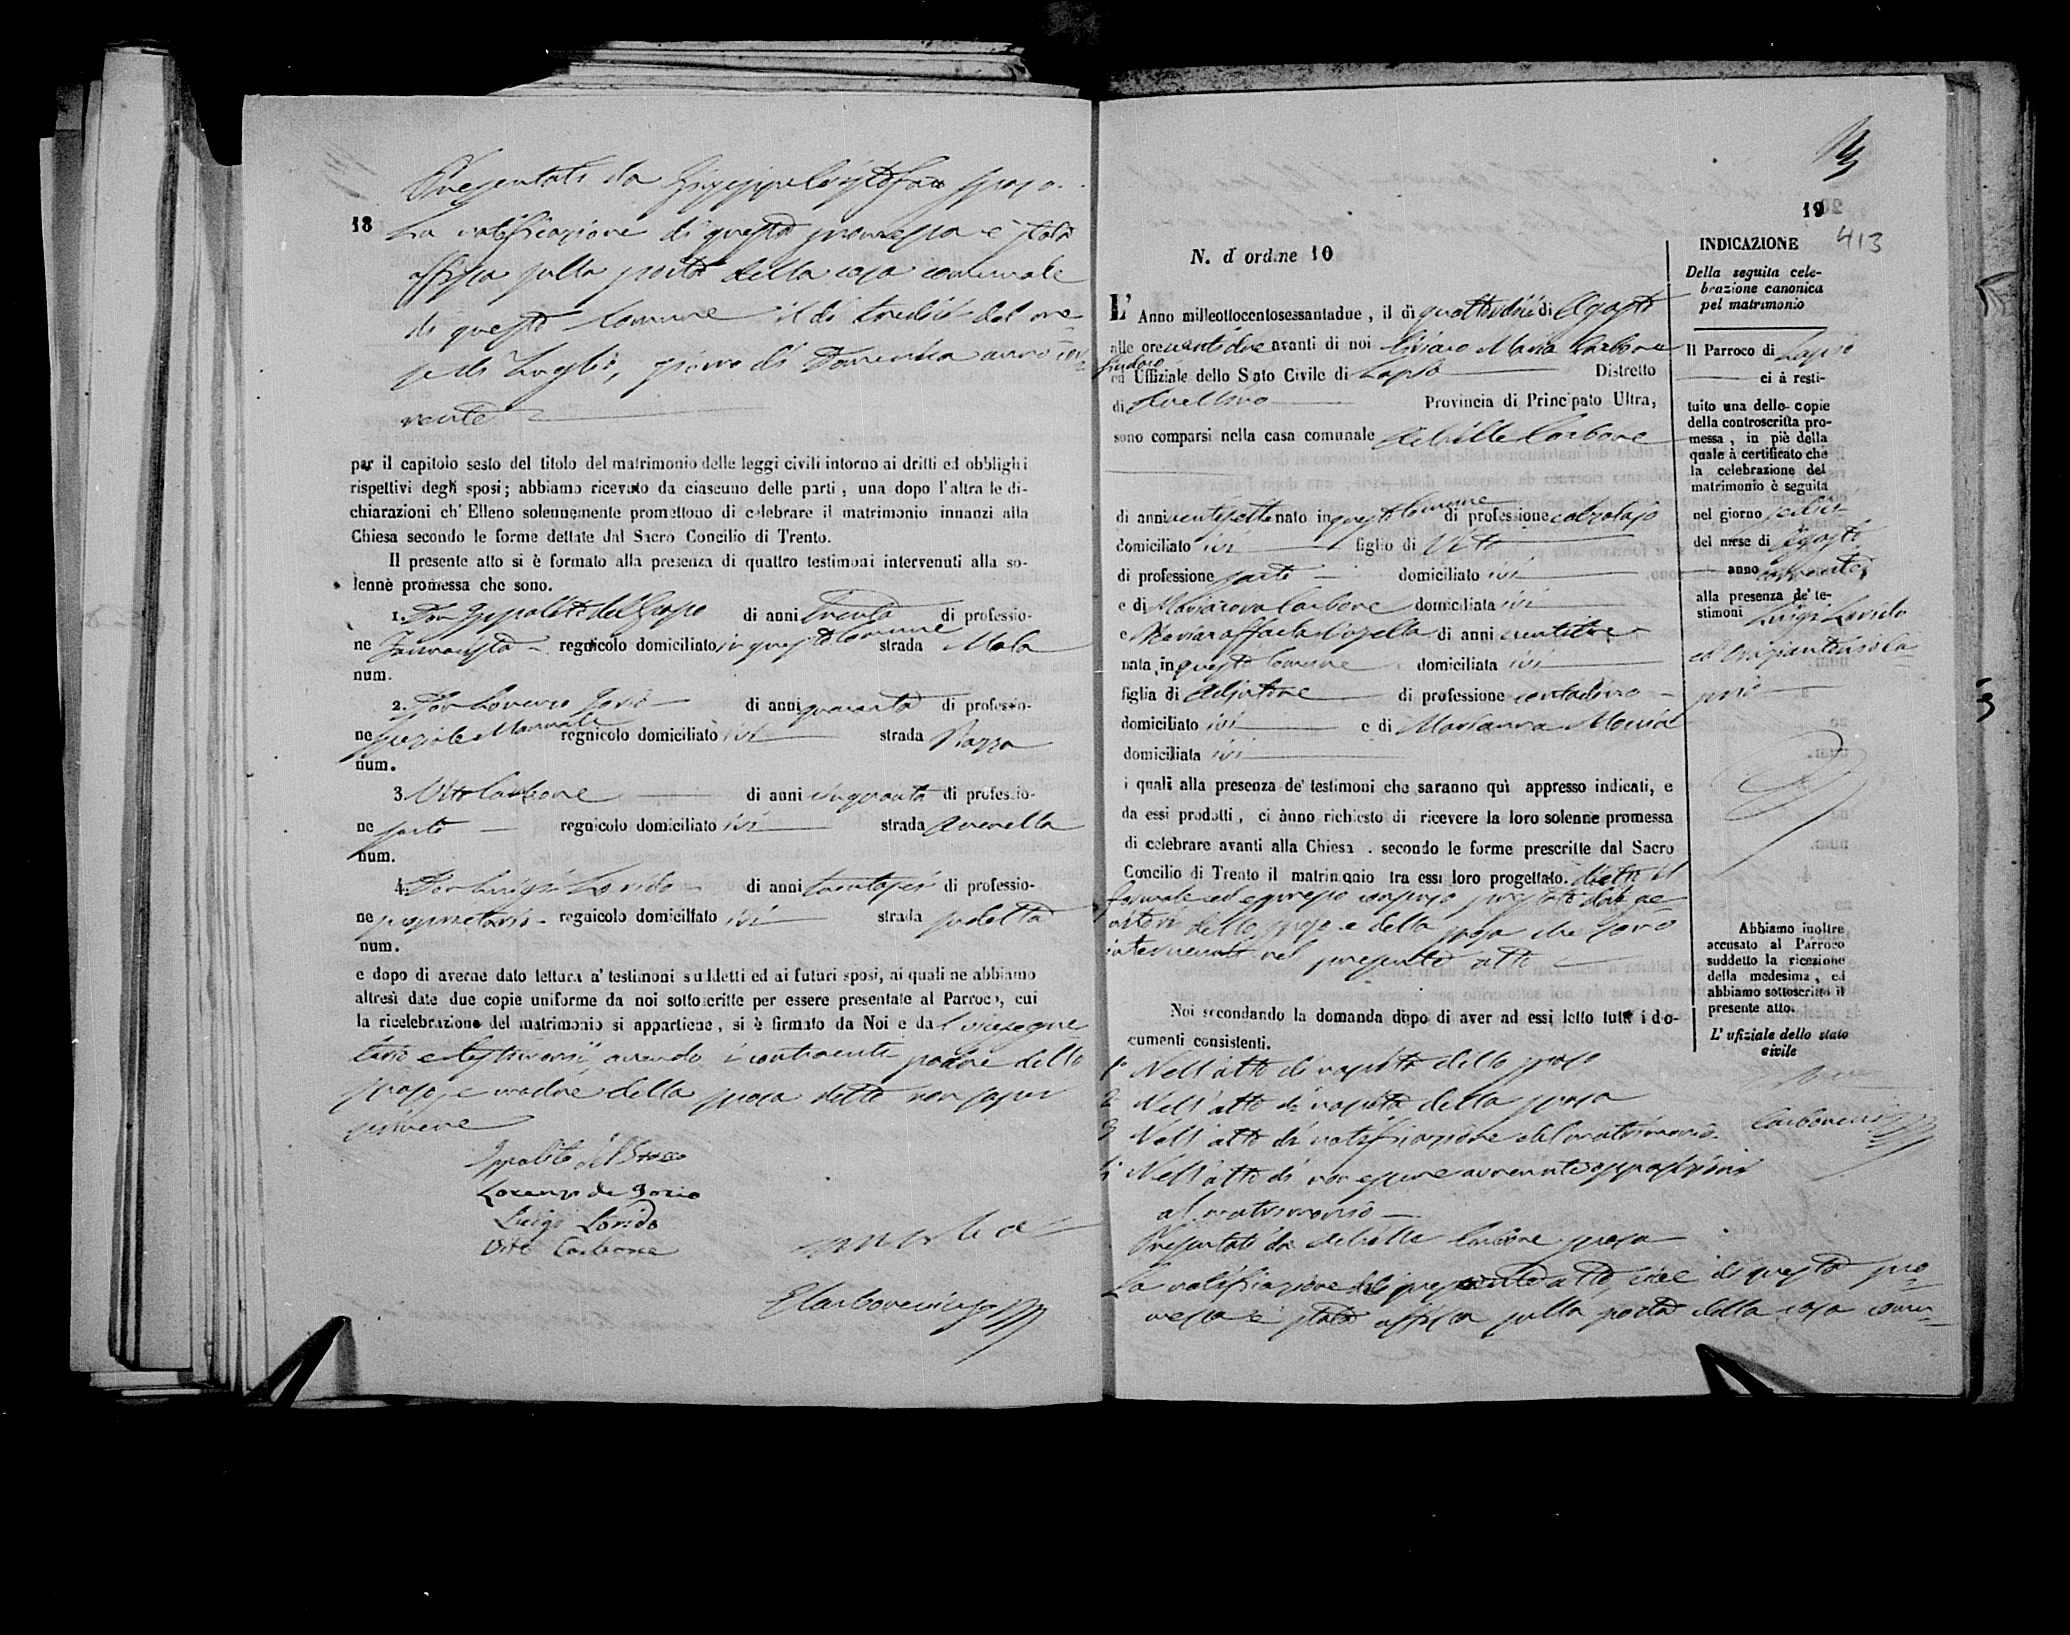 Presentati da Giuseppe Cristofaro sposo.
18
La notificazione di questa promessa è stata
affissa sulla porta della casa comunale
di questo Comune il dì tredici del me-
se di Luglio, giorno di Domenica anno cor-
rente
per il capitolo sesto del titolo del matrimonio delle leggi civili intorno ai dritti ed obblighi
rispettivi degli sposi; abbiamo ricevuto da ciascuno delle parti, una dopo l'altra le di-
chiarazioni ch' Elleno solennemente promettono di celebrare il matrimonio innanzi alla
Chiesa secondo le forme dettate dal Sacro Concilio di Trento.
Il presente atto si è formato alla presenza di quattro testimoni intervenuti alla so-
lenne promessa che sono.
1. Don Ippolito del Grosso di anni trenta di professio-
ne regnicolo domiciliato in questo Comune strada Mola
num.
2. Don Lorenzo Iorio di anni quaranta di professio-
ne regnicolo domiciliato ivi strada Piazza
num.
3. Vito Carbone di anni cinquanta di professio-
ne sarto regnicolo domiciliato ivi strada
num.
4. Don Luigi Lorido di anni trentasei di professio-
ne proprietario regnicolo domiciliato ivi strada
num.
e dopo di averne dato lettura a' testimoni suddetti ed ai futuri sposi, ai quali ne abbiamo
altresì date due copie uniforme da noi sottoscritte per essere presentate al Parroco, cui
la ricelebrazione del matrimonio si appartiene, si è firmato da Noi e dal
e testimonii, avendo i contraenti padre dello
sposo, e madre della sposa detto non saper
scrivere
Ippolito del Grosso
Lorenzo de Iorio
Luigi Lorido
Vito Carbone
19
413
N. d'ordine 10
L' Anno milleottocentosessantadue, il dì quattordici di Agosto
alle ore ventidue avanti di noi Ciriaco Maria Carbone
Sindaco
ed Uffiziale dello Stato Civile di Lapio Distretto
di Avellino Provincia di Principato Ultra,
sono comparsi nella casa comunale Achille Carbone
di anni ventisette nato in questo Comune di professione calzolajo
domiciliato ivi figlio di Vito
di professione sarto domiciliato ivi
e di Carbone domiciliata ivi
e Mariaraffaela di anni ventitre
nata in questo Comune domiciliata ivi
figlia di di professione contadino
domiciliato ivi e di Marianna
domiciliata ivi
i quali alla presenza de' testimoni che saranno quì appresso indicati, e
da essi prodotti, ci ànno richiesto di ricevere la loro solenne promessa
di celebrare avanti alla Chiesa, secondo le forme prescritte dal Sacro
Concilio di Trento il matrimonio tra essi loro progettato. dietro il
formale ed espresso consenso prestato dai ge-
nitori dello sposo e della sposa che sono
intervenuti nel presente atto
Noi secondando la domanda dopo di aver ad essi letto tutti i do-
cumenti consistenti.
1° Nell'atto di nascita dello sposo
2 Nell'atto di nascita della sposa
3 Nell'atto di notificazione del matrimonio
4 Nell'atto di non essere avvenute opposizioni
al matrimonio
Presentati da Achille Carbone sposo
La notificazione del presente atto, cioè di questa pro-
messa è stata affissa sulla porta della casa comu-
INDICAZIONE
Della seguita cele-
brazione canonica
pel matrimonio
Il Parroco di Lapio
ci à resti-
tuito una delle copie
della controscritta pro-
messa, in piè della
quale à certificato che
la celebrazione del
matrimonio è seguita
nel giorno sedici
del mese di Agosto
anno corrente
alla presenza de' te-
stimoni Luigi Lorido
ed
Abbiamo inoltre
accusato al Parroco
suddetto la ricezione
della medesima, ed
abbiamo sottoscritto il
presente atto.
L' ufiziale dello stato
civile